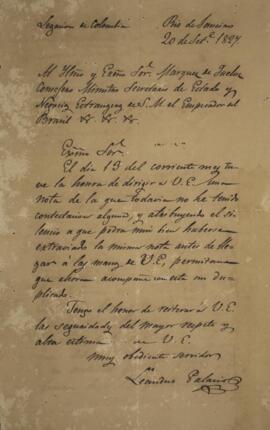 Legación de Colombia Rio de Janeiro
20 de Set.e 1827.
Al Ilmo y Exmo Sor. Marquez de Queluz
Consejero Ministro Secretario de Estado y
Negocios Extrangeros de S. M. el Emperador del
Brasil &. &. &.
Exmo Sor.
El dia 13 del corriente mes tu
ve la honra de dirigir a V.E. una
nota de la que todavia no he tenido
contestacion alguna, y atribuyendo el si
lencio a que podrá mui bien haberse
extraviado la misma nota antes de lle
gar á las manos de V.E., permitame
que ahora acompañe con esta su du
plicado.
Tengo el honor de reiterar á V.E.
las seguridades del mayor respeto y
alta estima de V.E.
muy obediente servidor
Leandro Palacios